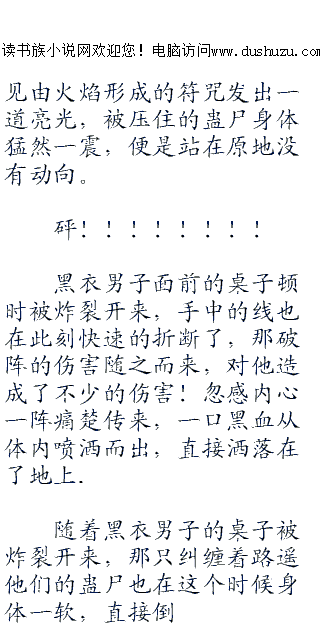 读书族小说网欢迎您！电脑访问www.dushuzu.com
见由火焰形成的符咒发出一
道亮光，被压住的蛊尸身体
猛然一震，便是站在原地没
有动向。
砰！！！！！！！！
黑衣男子面前的桌子顿
时被炸裂开来，手中的线也
在此刻快速的折断了，那破
阵的伤害随之而来，对他造
成了不少的伤害！忽感内心
一阵痛楚传来，一口黑血从
体内喷洒而出，直接洒落在
了地上.
随着黑衣男子的桌子被
炸裂开来，那只纠缠着路遥
他们的蛊尸也在这个时候身
体一软，直接倒